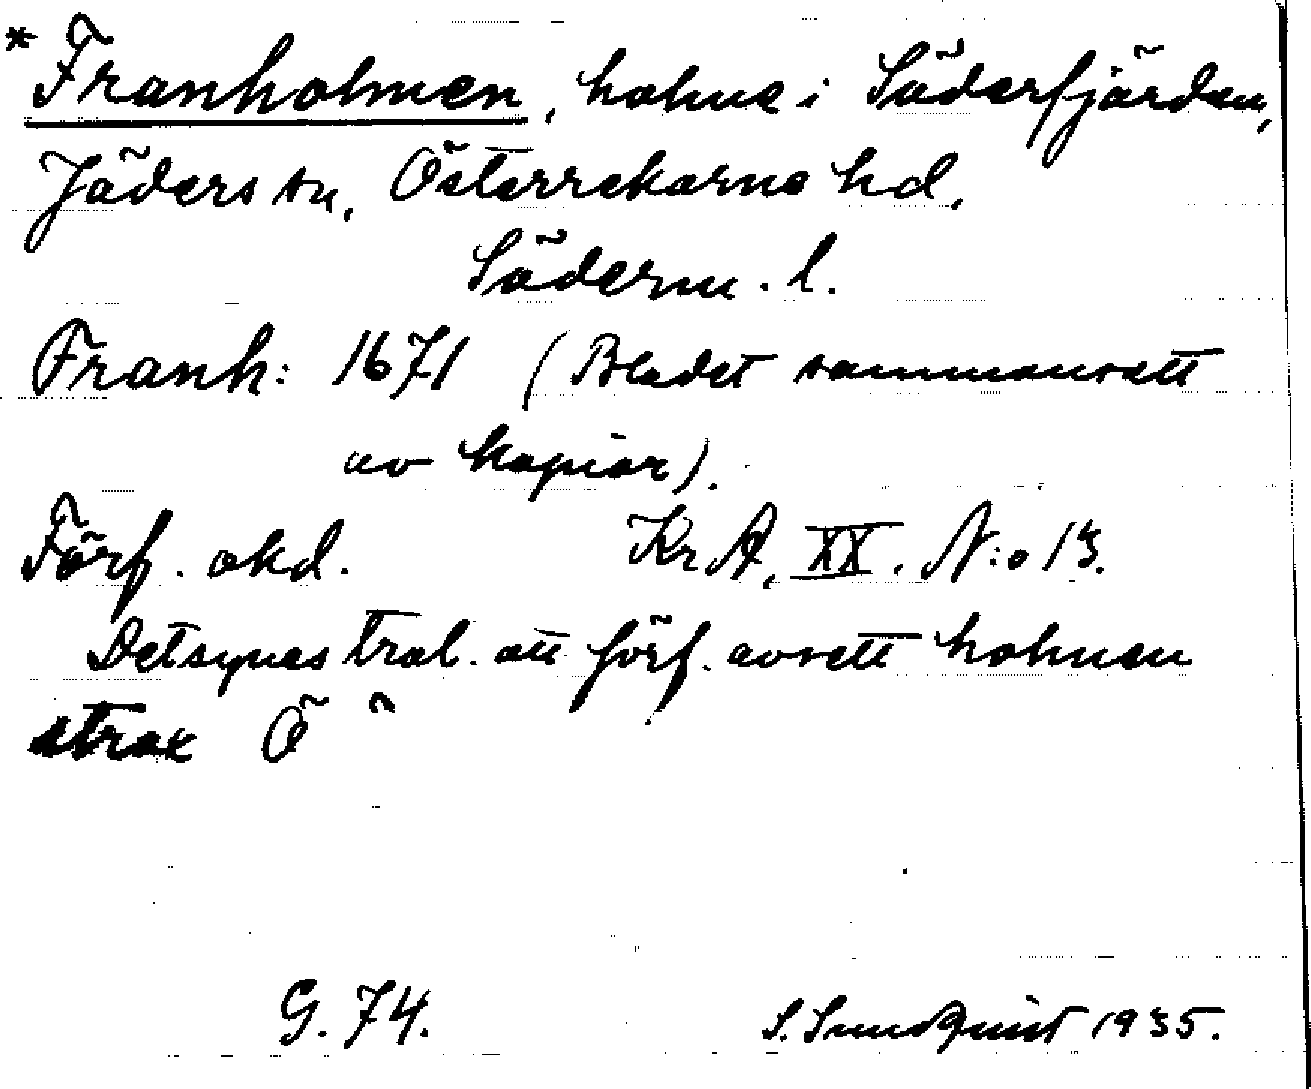 *Franholmen, holme i Söderfjärden,
Jäders sn, Österrekarne hd,
Söderm. l.
Franh: 1671 (Bladet sammansatt
av kopior).
Förf. okd. KrA, XX. N:o 13.
Det synes trol. att förf. avsett holmen
strax Ö
G. 74. S. Sundquist 1935.